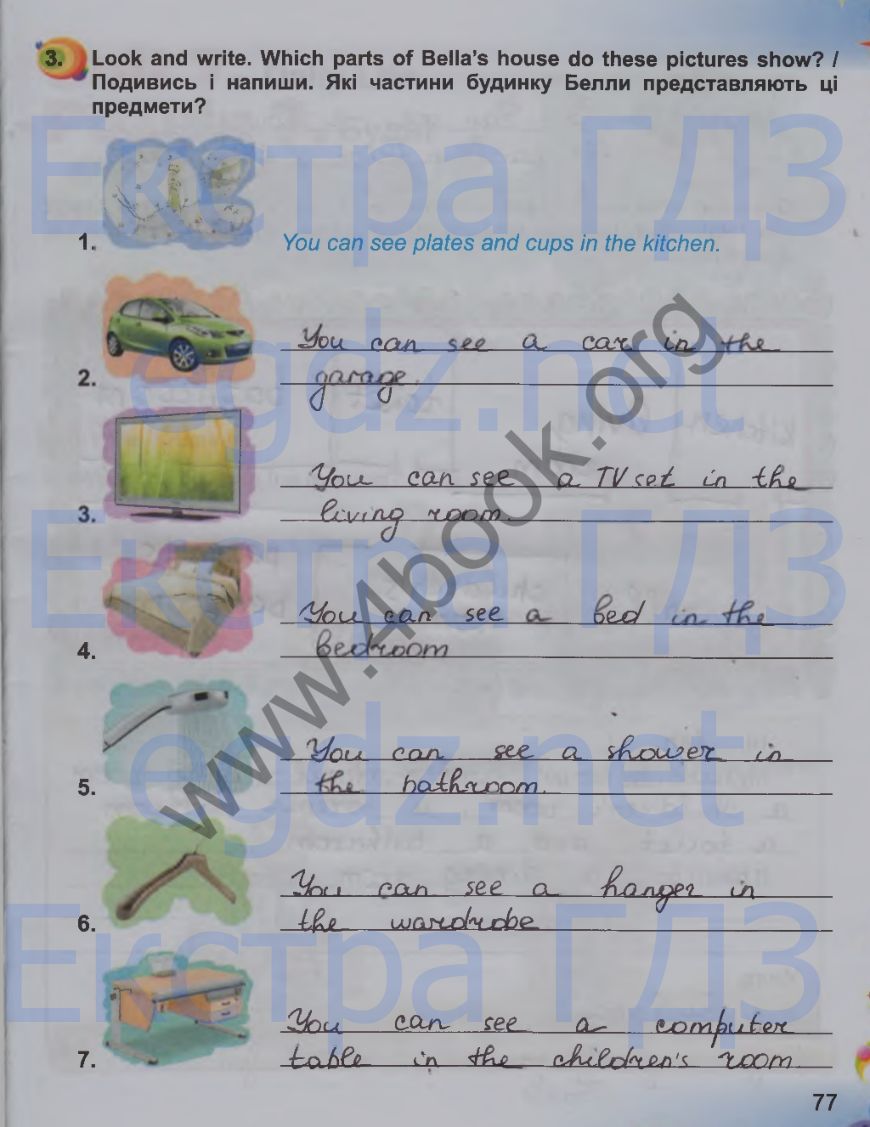 3. Look and write. Which parts of Bella's house do these pictures show? /
Подивись і напиши. Які частини будинку Белли представляють ці
предмети?
Екстра ГДЗ
1. You can see plates and cups in the kitchen.
egdz.net
2. You can see a car in the
garage.
www.4book.org
3. You can see a TV set in the
living room.
Екстра ГДЗ
4. You can see a bed in the
bedroom
egdz.net
5. You can see a shower in
the bathroom.
6. You can see a hanger in
the wardrobe
Екстра ГДЗ
7. You can see a computer
table in the children's room
77